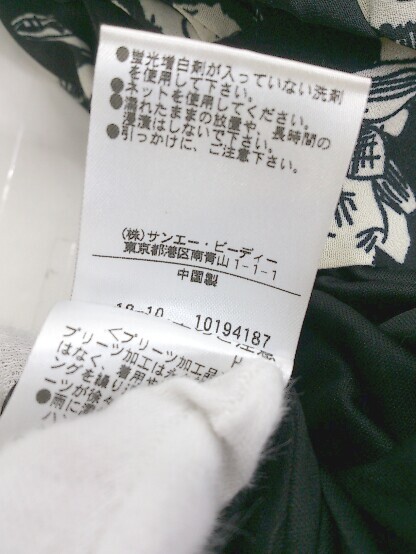 ●蛍光増白剤が入っていない洗剤
を使用して下さい。
●ネットを使用してください。
●濡れたままの放置や、長時間の
浸漬はしないで下さい。
●引っかけに、ご注意下さい。
(株)サンエー・ビーディー
東京都港区南青山1-1-1
中国製
10194187
<プリーツ加工品
プリーツ加工は永
はなく、着用や
ングを繰り
ーツが徐々
●雨に濡